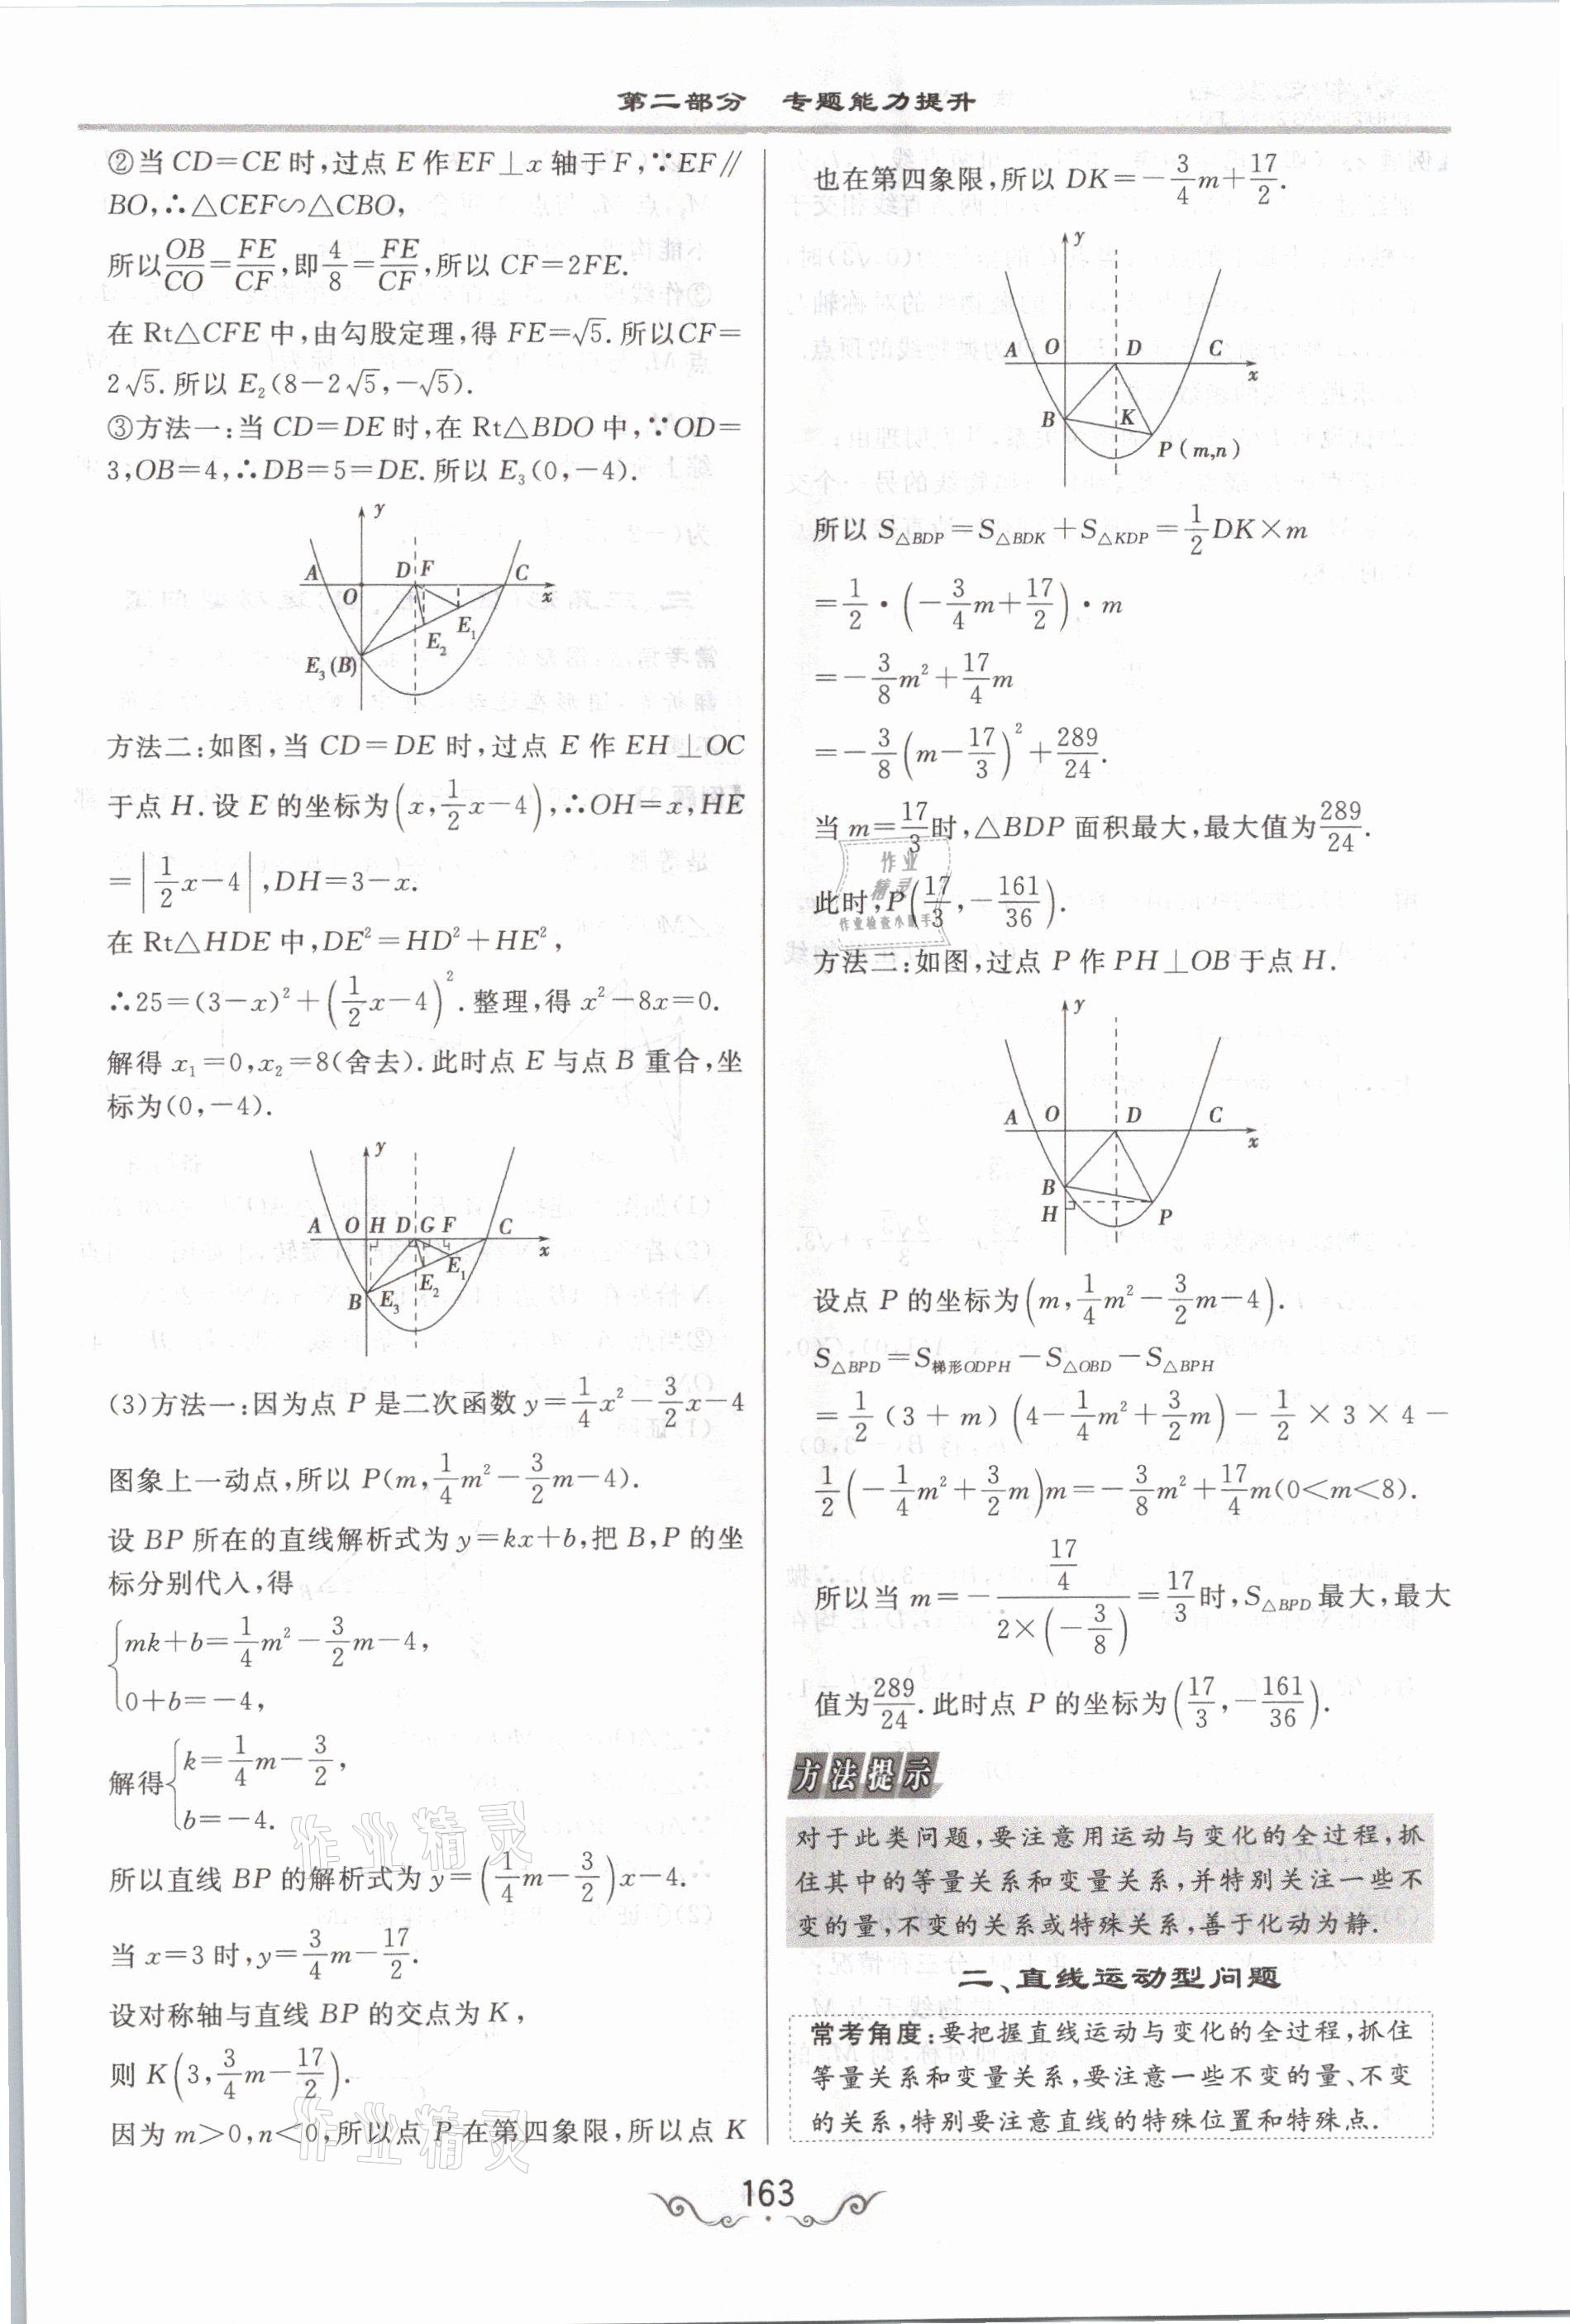 第二部分　专题能力提升
②当CD=CE时,过点E作EF⊥x轴于F,∵EF∥
BO,∴△CEF∽△CBO,
所以OB/CO=FE/CF,即4/8=FE/CF,所以CF=2FE.
在Rt△CFE中,由勾股定理,得FE=√5.所以CF=
2√5.所以E₂(8-2√5,-√5).
③方法一:当CD=DE时,在Rt△BDO中,∵OD=
3,OB=4,∴DB=5=DE.所以E₃(0,-4).
y
A D F C
O x
E₁
E₂
E₃(B)
方法二:如图,当CD=DE时,过点E作EH⊥OC
于点H.设E的坐标为(x,1/2x-4),∴OH=x,HE
=|1/2x-4|,DH=3-x.
在Rt△HDE中,DE²=HD²+HE²,
∴25=(3-x)²+(1/2x-4)².整理,得x²-8x=0.
解得x₁=0,x₂=8(舍去).此时点E与点B重合,坐
标为(0,-4).
y
A O H D G F C
x
E₁
E₂
B E₃
(3)方法一:因为点P是二次函数y=1/4x²-3/2x-4
图象上一动点,所以P(m,1/4m²-3/2m-4).
设BP所在的直线解析式为y=kx+b,把B,P的坐
标分别代入,得
{mk+b=1/4m²-3/2m-4,
0+b=-4,
解得{k=1/4m-3/2,
b=-4.
所以直线BP的解析式为y=(1/4m-3/2)x-4.
当x=3时,y=3/4m-17/2.
设对称轴与直线BP的交点为K,
则K(3,3/4m-17/2).
因为m>0,n<0,所以点P在第四象限,所以点K
也在第四象限,所以DK=-3/4m+17/2.
y
A O D C
x
B K
P(m,n)
所以S△BDP=S△BDK+S△KDP=1/2DK×m
=1/2·(-3/4m+17/2)·m
=-3/8m²+17/4m
=-3/8(m-17/3)²+289/24.
当m=17/3时,△BDP面积最大,最大值为289/24.
此时,P(17/3,-161/36).
方法二:如图,过点P作PH⊥OB于点H.
y
A O D C
x
B
H P
设点P的坐标为(m,1/4m²-3/2m-4).
S△BPD=S梯形ODPH-S△OBD-S△BPH
=1/2(3+m)(4-1/4m²+3/2m)-1/2×3×4-
1/2(-1/4m²+3/2m)m=-3/8m²+17/4m(0<m<8).
所以当m=-(17/4)/(2×(-3/8))=17/3时,S△BPD最大,最大
值为289/24.此时点P的坐标为(17/3,-161/36).
方法提示
对于此类问题,要注意用运动与变化的全过程,抓
住其中的等量关系和变量关系,并特别关注一些不
变的量,不变的关系或特殊关系,善于化动为静.
二、直线运动型问题
常考角度:要把握直线运动与变化的全过程,抓住
等量关系和变量关系,要注意一些不变的量、不变
的关系,特别要注意直线的特殊位置和特殊点.
163
作业精灵
作业精灵
作业
精灵
作业检查小助手